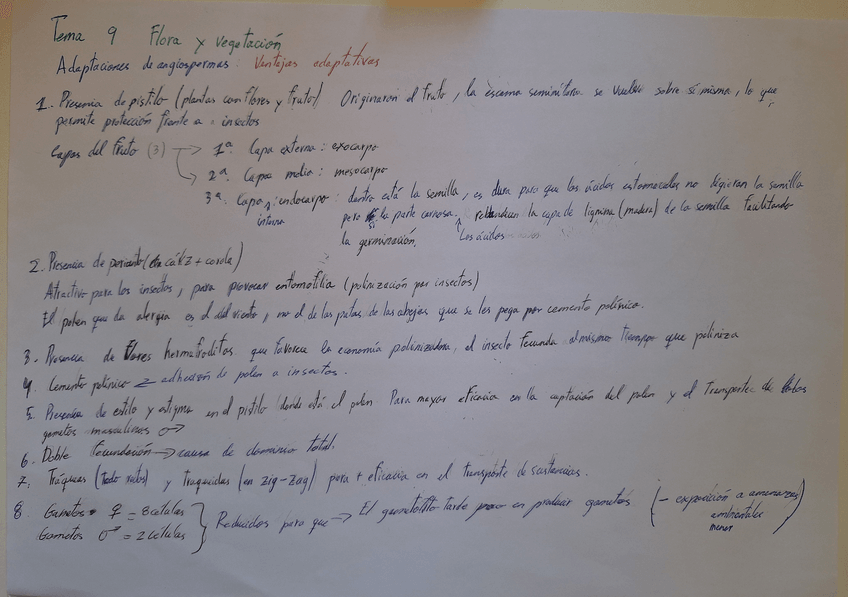 Tema 9 Flora y vegetación
Adaptaciones de angiospermas: Ventajas adaptativas
1. Presencia de pistilo (plantas con flores y fruto) Originaron el fruto, la escama seminífera se vuelve sobre sí misma, lo que
permite protección frente a insectos
Capas del fruto (3) → 1ª: Capa externa: exocarpo
→ 2ª: Capa media: mesocarpo
3ª: Capa interna: endocarpo: dentro está la semilla, es dura para que los ácidos estomacales no digieran la semilla
pero si la parte carnosa. Los ácidos reblandecen la capa de lignina (madera) de la semilla facilitando
la germinación.
2. Presencia de perianto (cáliz + corola)
Atractivo para los insectos, para provocar entomofilia (polinización por insectos)
El polen que da alergia es el del viento, no el de las patas de las abejas que se les pega por cemento polínico.
3. Presencia de flores hermafroditas, que favorece la economía polinizadora, el insecto fecunda al mismo tiempo que poliniza
4. Cemento polínico adhesión de polen a insectos.
5. Presencia de estilo y estigma en el pistilo donde está el Para mayor eficacia en la captación del polen y el transporte de
gametos masculinos ♂
6. Doble fecundación → causa de dominio total.
7. Tráqueas (todo rectos) y traqueidas (en zig-zag) para + eficacia en el transporte de sustancias.
8. Gametos ♀ = 8 células
Gametos ♂ = 2 células } Reducidos para que → El gametofito tarde poco en producir gametos (- exposición a amenazas
ambientales
menor)